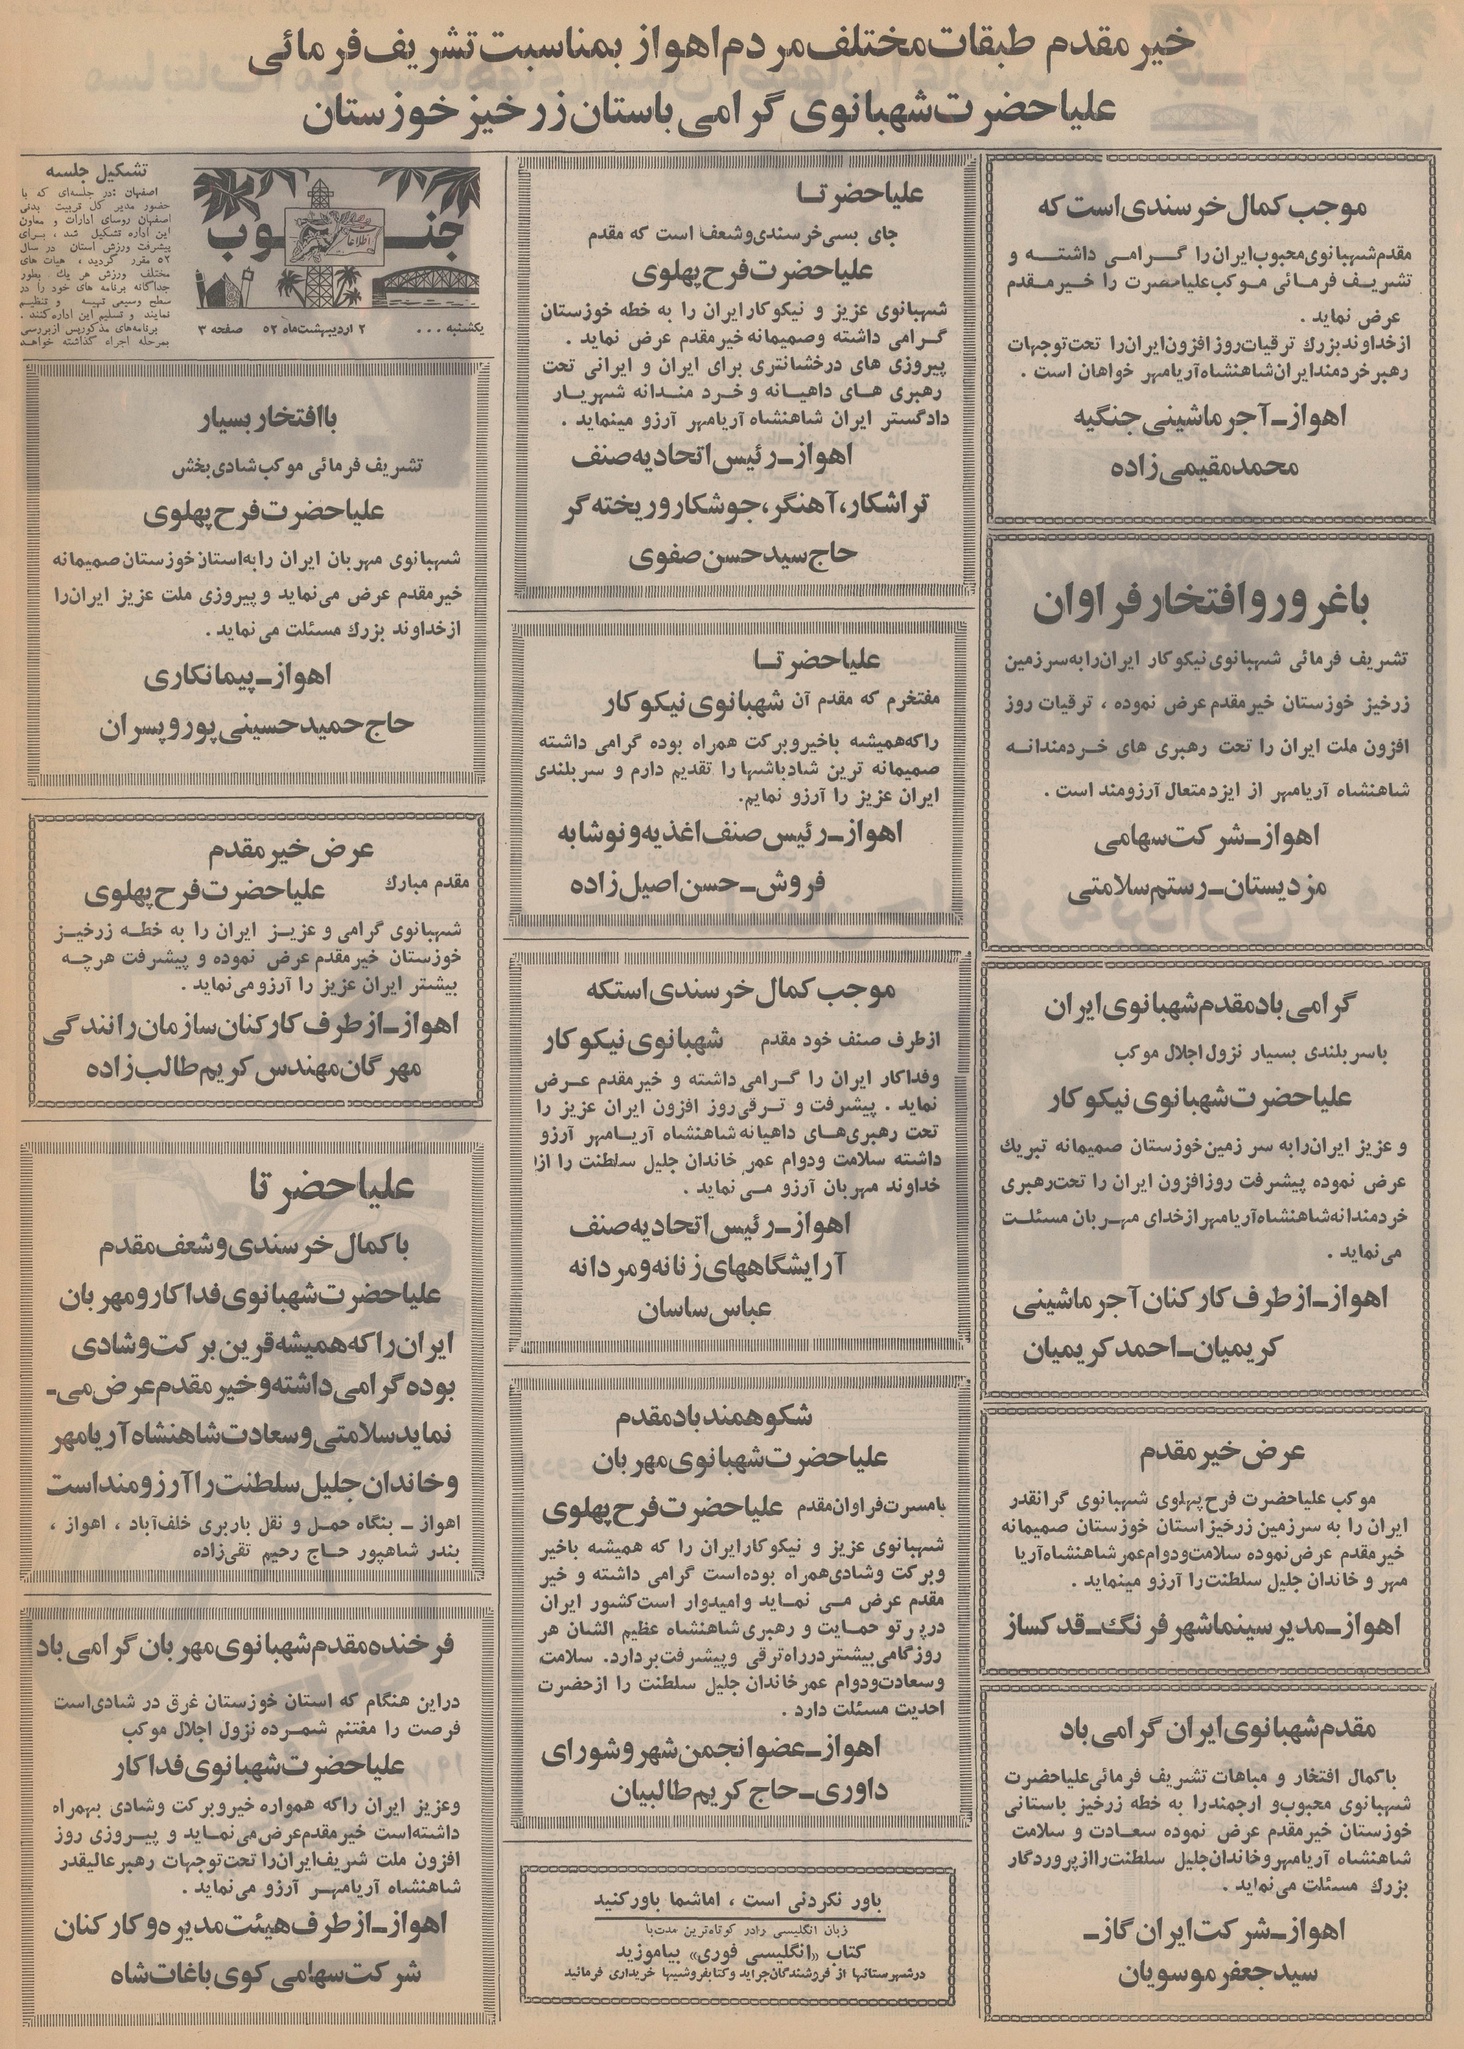 خیر مقدم طبقات مختلف مردم اهواز بمناسبت تشریف فرمائی
علیاحضرت شهبانوی گرامی باستان زرخیز خوزستان
موجب کمال خرسندی است که
مقدم شهبانوی محبوب ایران را گرامی داشته و
تشریف فرمائی موکب علیاحضرت را خیر مقدم
عرض نماید .
از خداوند بزرك ترقیات روز افزون ایران را تحت توجهات
رهبر خردمند ایران شاهنشاه آریامهر خواهان است .
اهواز ـ آجر ماشینی جنگیه
محمد مقیمی زاده
با غرور و افتخار فراوان
تشریف فرمائی شهبانوی نیکو کار ایران را به سرزمین
زرخیز خوزستان خیر مقدم عرض نموده ، ترقیات روز
افزون ملت ایران را تحت رهبری های خردمندانه
شاهنشاه آریامهر از ایزد متعال آرزومند است .
اهواز ـ شرکت سهامی
مزدیستان ـ رستم سلامتی
گرامی باد مقدم شهبانوی ایران
با سربلندی بسیار نزول اجلال موکب
علیاحضرت شهبانوی نیکو کار
و عزیز ایران را به سرزمین خوزستان صمیمانه تبریك
عرض نموده پیشرفت روزافزون ایران را تحت رهبری
خردمندانه شاهنشاه آریامهر از خدای مهربان مسئلت
می نماید .
اهواز ـ از طرف کارکنان آجر ماشینی
کریمیان ـ احمد کریمیان
عرض خیر مقدم
موکب علیاحضرت فرح پهلوی شهبانوی گرانقدر
ایران را به سرزمین زرخیز استان خوزستان صمیمانه
خیر مقدم عرض نموده سلامت و دوام عمر شاهنشاه آریا
مهر و خاندان جلیل سلطنت را آرزو مینماید .
اهواز ـ مدیر سینما شهر فرنگ ـ قدکساز
مقدم شهبانوی ایران گرامی باد
با کمال افتخار و مباهات تشریف فرمائی علیاحضرت
شهبانوی محبوب و ارجمند را به خطه زرخیز باستانی
خوزستان خیر مقدم عرض نموده سعادت و سلامت
شاهنشاه آریامهر و خاندان جلیل سلطنت را از پروردگار
بزرك مسئلت می نماید .
اهواز ـ شرکت ایران گاز ـ
سید جعفر موسویان
علیاحضرتا
جای بسی خرسندی و شعف است که مقدم
علیاحضرت فرح پهلوی
شهبانوی عزیز و نیکو کار ایران را به خطه خوزستان
گرامی داشته و صمیمانه خیر مقدم عرض نماید .
پیروزی های درخشانتری برای ایران و ایرانی تحت
رهبری های داهیانه و خرد مندانه شهریار
دادگستر ایران شاهنشاه آریامهر آرزو مینماید .
اهواز ـ رئیس اتحادیه صنف
تراشکار، آهنگر، جوشکار و ریخته گر
حاج سید حسن صفوی
علیاحضرتا
مفتخرم که مقدم آن شهبانوی نیکو کار
را که همیشه با خیر و برکت همراه بوده گرامی داشته
صمیمانه ترین شادباشها را تقدیم دارم و سربلندی
ایران عزیز را آرزو نمایم.
اهواز ـ رئیس صنف اغذیه و نوشابه
فروش ـ حسن اصیل زاده
موجب کمال خرسندی استکه
از طرف صنف خود مقدم شهبانوی نیکو کار
و فداکار ایران را گرامی داشته و خیر مقدم عرض
نماید . پیشرفت و ترقی روز افزون ایران عزیز را
تحت رهبری‌های داهیانه شاهنشاه آریامهر آرزو
داشته سلامت و دوام عمر خاندان جلیل سلطنت را از
خداوند مهربان آرزو می نماید .
اهواز ـ رئیس اتحادیه صنف
آرایشگاههای زنانه و مردانه
عباس ساسان
شکوهمند باد مقدم
علیاحضرت شهبانوی مهربان
با مسرت فراوان مقدم علیاحضرت فرح پهلوی
شهبانوی عزیز و نیکو کار ایران را که همیشه باخیر
و برکت و شادی همراه بوده است گرامی داشته و خیر
مقدم عرض می نماید و امیدوار است کشور ایران
در پرتو حمایت و رهبری شاهنشاه عظیم الشان هر
روز گامی بیشتر در راه ترقی و پیشرفت بردارد. سلامت
و سعادت و دوام عمر خاندان جلیل سلطنت را از حضرت
احدیت مسئلت دارد .
اهواز ـ عضو انجمن شهر و شورای
داوری ـ حاج کریم طالبیان
باور نکردنی است ، اما شما باور کنید
زبان انگلیسی را در کوتاه‌ترین مدت با
کتاب «انگلیسی فوری» بیاموزید
در شهرستانها از فروشندگان جراید و کتابفروشیها خریداری فرمائید
جنوب
اطلاعات
یکشنبه ... ۲ اردیبهشت ماه ۵۲ صفحه ۳
تشکیل جلسه
اصفهان : در جلسه‌ای که با
حضور مدیر کل تربیت بدنی
اصفهان روسای ادارات و معاون
این اداره تشکیل شد ، برای
پیشرفت ورزش استان در سال
۵۲ مقرر گردید ، هیات های
مختلف ورزش هر یك بطور
جداگانه برنامه های خود را در
سطح وسیعی تهیه و تنظیم
نمایند و تسلیم این اداره کنند .
برنامه‌های مذکور پس از بررسی
بمرحله اجراء گذاشته خواهد
با افتخار بسیار
تشریف فرمائی موکب شادی بخش
علیاحضرت فرح پهلوی
شهبانوی مهربان ایران را به استان خوزستان صمیمانه
خیر مقدم عرض می نماید و پیروزی ملت عزیز ایران را
از خداوند بزرك مسئلت می نماید .
اهواز ـ پیمانکاری
حاج حمید حسینی پور و پسران
عرض خیر مقدم
مقدم مبارك علیاحضرت فرح پهلوی
شهبانوی گرامی و عزیز ایران را به خطه زرخیز
خوزستان خیر مقدم عرض نموده و پیشرفت هر چه
بیشتر ایران عزیز را آرزو می نماید .
اهواز ـ از طرف کارکنان سازمان رانندگی
مهرگان مهندس کریم طالب زاده
علیاحضرتا
با کمال خرسندی و شعف مقدم
علیاحضرت شهبانوی فداکار و مهربان
ایران را که همیشه قرین برکت و شادی
بوده گرامی داشته و خیر مقدم عرض می ـ
نماید سلامتی و سعادت شاهنشاه آریامهر
و خاندان جلیل سلطنت را آرزومند است
اهواز ـ بنگاه حمل و نقل باربری خلف آباد ، اهواز ،
بندر شاهپور حاج رحیم تقی زاده
فرخنده مقدم شهبانوی مهربان گرامی باد
در این هنگام که استان خوزستان غرق در شادی است
فرصت را مغتنم شمرده نزول اجلال موکب
علیاحضرت شهبانوی فداکار
و عزیز ایران را که همواره خیر و برکت و شادی بهمراه
داشته است خیر مقدم عرض می نماید و پیروزی روز
افزون ملت شریف ایران را تحت توجهات رهبر عالیقدر
شاهنشاه آریامهر آرزو می نماید .
اهواز ـ از طرف هیئت مدیره و کارکنان
شرکت سهامی کوی باغات شاه